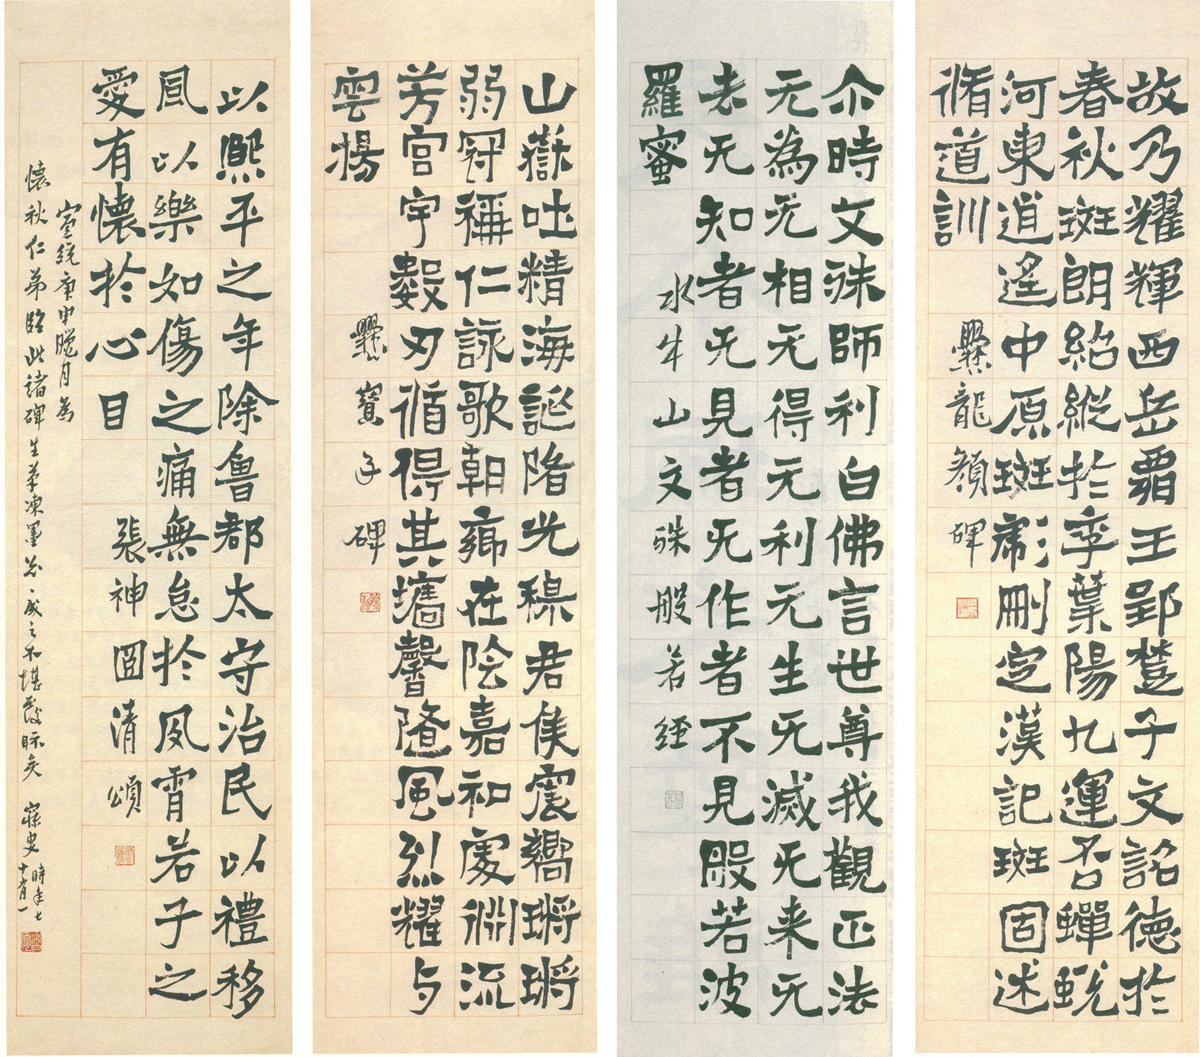 故乃耀輝西岳霸王郢楚子文銘德於
春秋斑朗紹縱於季葉陽九運否蟬蛻
河東逍遙中原斑彪刪定漢記斑固述
脩道訓
爨龍顏碑
尒時文殊師利白佛言世尊我觀正法
无為无相无得无利无生旡滅旡来旡
去无知者旡見者旡作者不見般若波
羅蜜
水牛山文殊般若經
山嶽吐精海誕陗光穆君侯震嚮鏘鏘
弱冠稱仁詠歌朝鄉在陰嘉和處淵流
芳宮宇數刃循得其墻馨隆風烈耀与
雲揚
爨寶子碑
以熙平之年除魯郡太守治民以禮移
風以樂如傷之痛無怠於夙霄若子之
愛有懷於心目
張神冏清頌
宣統庚申臘月為
懷秋仁弟臨此諸碑生筆凍墨忽々成之不堪發眎矣 寐叟時年七十有一